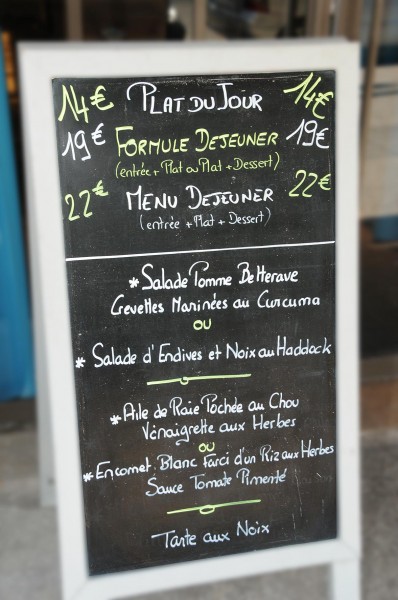 14€ PLAT DU JOUR 14€
19€ FORMULE DEJEUNER 19€
(entrée + Plat ou Plat + Dessert)
22€ MENU DEJEUNER 22€
(entrée + Plat + Dessert)
*Salade Pomme Betterave
Crevettes Marinées au Curcuma
OU
* Salade d'Endives et Noix au Haddock
*Aile de Raie Pochée au Chou
Vénaigrette aux Herbes
OU
*Encornet Blanc Farci d'un Riz aux Herbes
Sauce Tomate Pimenté
Tarte aux Noix